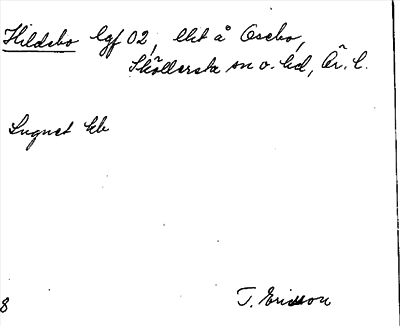 Hildebo lgf 02, lht å Osebo,
Sköllersta sn o. hd, Är. l.
Lugnet kb
T. Ericsson
8